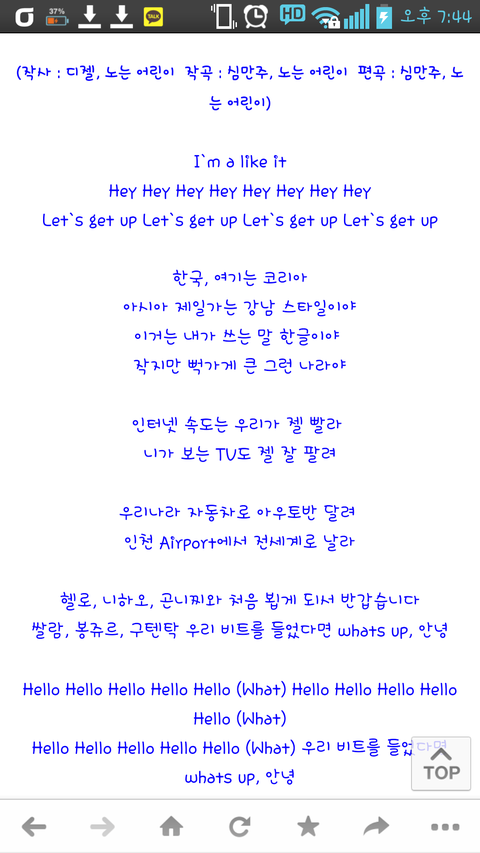 37%
TALK
HD
오후 7:44
(작사 : 디젤, 노는 어린이  작곡 : 심만주, 노는 어린이  편곡 : 심만주, 노
는 어린이)
I`m a like it
Hey Hey Hey Hey Hey Hey Hey Hey
Let`s get up Let`s get up Let`s get up Let`s get up
한국, 여기는 코리아
아시아 제일가는 강남 스타일이야
이거는 내가 쓰는 말 한글이야
작지만 뻑가게 큰 그런 나라야
인터넷 속도는 우리가 젤 빨라
니가 보는 TV도 젤 잘 팔려
우리나라 자동차로 아우토반 달려
인천 Airport에서 전세계로 날라
헬로, 니하오, 곤니찌와 처음 뵙게 되서 반갑습니다
쌀람, 봉쥬르, 구텐탁 우리 비트를 들었다면 whats up, 안녕
Hello Hello Hello Hello Hello (What) Hello Hello Hello Hello
Hello (What)
Hello Hello Hello Hello Hello (What) 우리 비트를 들었다면
whats up, 안녕
TOP